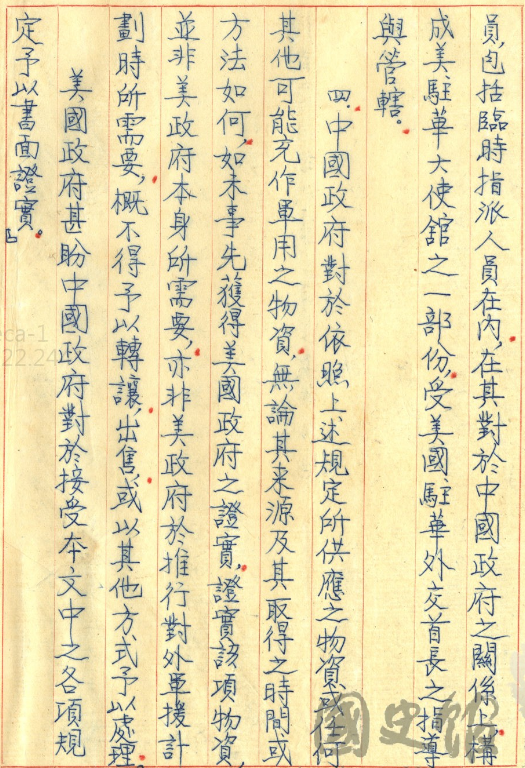 員，包括臨時指派人員在內，在其對於中國政府之關係上，構
成美駐華大使舘之一部份，受美國駐華外交首長之指導
與管轄。
四、中國政府對於依照上述規定所供應之物資或任何
其他可能充作軍用之物資，無論其来源及其取得之時間或
方法如何，如未事先獲得美國政府之證實，證實該項物資，
並非美政府本身所需要，亦非美政府於推行對外軍援計
劃時所需要，概不得予以轉讓，出售，或以其他方式予以處理。
美國政府甚盼中國政府對於接受本文中之各項規
定予以書面證實。」
國史館
eca-1
22.24